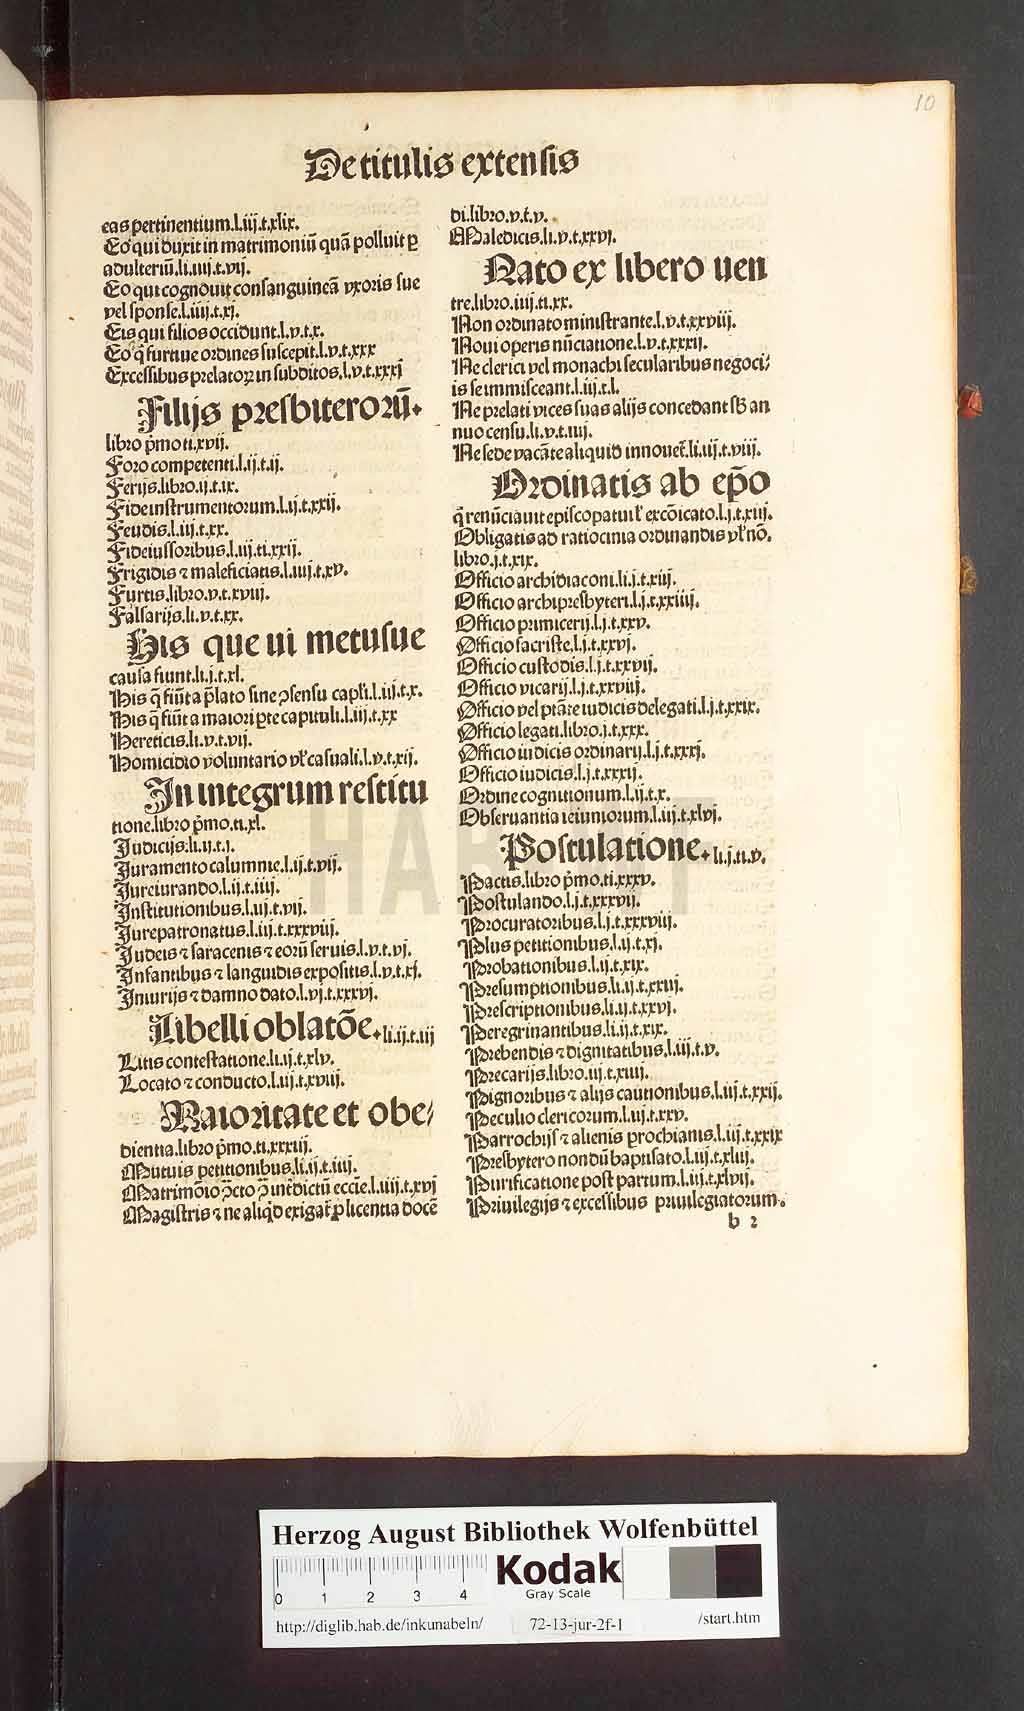 10
De titulis extensis
eas pertinentium.l.iij.t.xlix.
Eo qui duxit in matrimoniū quā polluit ꝑ
adulteriū.li.iiij.t.vij.
Eo qui cognouit consanguineā vxoris sue
vel sponse.l.iiij.t.xj.
Eis qui filios occidunt.l.v.t.x.
Eo q̄ furtiue ordines suscepit.l.v.t.xxx
Excessibus prelatoꝝ in subditos.l.v.t.xxxj
Filijs presbiterorū.
libro pͥmo ti.xvij.
Foro competenti.l.ij.t.ij.
Ferijs.libro.ij.t.ix.
Fide instrumentorum.l.ij.t.xxij.
Feudis.l.iij.t.xx.
Fideiussoribus.l.iij.ti.xxij.
Frigidis ⁊ maleficiatis.l.iiij.t.xv.
Furtis.libro.v.t.xviij.
Falsarijs.li.v.t.xx.
His que ui metusue
causa fiunt.li.j.t.xl.
His q̄ fiūt a p̄lato sine ꝯsensu capl'i.l.iij.t.x.
His q̄ fiūt a maiori ꝑte capituli.l.iij.t.xx
Hereticis.li.v.t.vij.
Homicidio voluntario vl' casuali.l.v.t.xij.
In integrum restitu
tione.libro pͥmo.ti.xl.
Judicijs.li.ij.t.j.
Juramento calumnie.l.ij.t.vij.
Jureiurando.l.ij.t.iiij.
Institutionibus.l.iij.t.vij.
Jurepatronatus.l.iij.t.xxxviij.
Judeis ⁊ saracenis ⁊ eorū seruis.l.v.t.vj.
Infantibus ⁊ languidis expositis.l.v.t.xj.
Iniurijs ⁊ damno dato.l.vj.t.xxxvj.
Libelli oblatōe.li.ij.t.iij
Litis contestatione.li.ij.t.xlv.
Locato ⁊ conducto.l.iij.t.xviij.
Maioritate et obe/
dientia.libro pͥmo.ti.xxxiij.
Mutuis petitionibus.li.ij.t.iiij.
Matrimōio ꝯ̄cto ꝯ̄ int̄dictū eccīe.l.iiij.t.xvj
Magistris ⁊ ne aliq̇d exigat̄ ꝓ licentia docē
di.libro.v.t.v.
Maledicis.li.v.t.xxvj.
Nato ex libero uen
tre.libro.iiij.ti.xx.
Non ordinato ministrante.l.v.t.xxviij.
Noui operis nūciatione.l.v.t.xxxij.
Ne clerici vel monachi secularibus negoci/
is se immisceant.l.iij.t.l.
Ne prelati vices suas alijs concedant sb̄ an
nuo censu.li.v.t.iiij.
Ne sede vacāte aliquid innouet̄.li.iij.t.viij.
Ordinatis ab ep̄o
q̄ renūciauit episcopatui vl' excōicato.l.j.t.xiij.
Obligatis ad ratiocinia ordinandis vl' nō.
libro.j.t.xix.
Officio archidiaconi.li.j.t.xiij.
Officio archipresbyteri.l.j.t.xxiiij.
Officio primicerij.l.j.t.xxv.
Officio sacriste.l.j.t.xxvj.
Officio custodis.l.j.t.xxvij.
Officio vicarij.l.j.t.xxviij.
Officio vel ptāte iudicis delegati.l.j.t.xxix.
Officio legati.libro.j.t.xxx.
Officio iudicis ordinarij.l.j.t.xxxj.
Officio iudicis.l.j.t.xxxij.
Ordine cognitionum.l.ij.t.x.
Obseruantia ieiuniorum.l.iij.t.xlvj.
Postulatione.li.j.ti.v.
Pactis.libro pͥmo.ti.xxxv.
Postulando.l.j.t.xxxvij.
Procuratoribus.l.j.t.xxxviij.
Plus petitionibus.l.ij.t.xj.
Probationibus.l.ij.t.xix.
Presumptionibus.li.ij.t.xxiij.
Prescriptionibus.li.ij.t.xxvj.
Peregrinantibus.li.ij.t.xix.
Prebendis ⁊ dignitatibus.l.iij.t.v.
Precarijs.libro.iij.t.xiiij.
Pignoribus ⁊ alijs cautionibus.l.iij.t.xxij.
Peculio clericorum.l.iij.t.xxv.
Parrochijs ⁊ alienis ꝓrochianis.l.iij.t.xxix
Presbytero non dū baptisato.l.iij.t.xliij.
Purificatione post partum.l.iij.t.xlvij.
Priuilegijs ⁊ excessibus priuilegiatorum.
b 2
HAB WF
Herzog August Bibliothek Wolfenbüttel
0 1 2 3 4
Kodak
Gray Scale
http://diglib.hab.de/inkunabeln/ 72-13-jur-2f-1 /start.htm